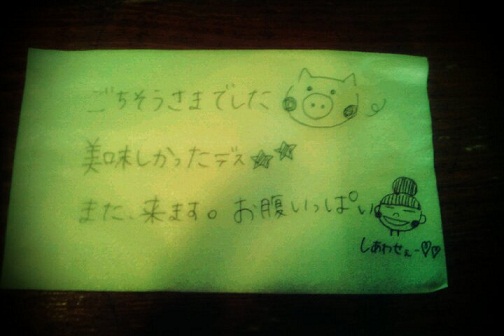 ごちそうさまでした
美味しかったデス☆☆
また、来ます。お腹いっぱい
しあわせぇ〜♡♡